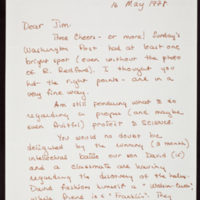 16 May 1975
Dear Jim:
Three cheers - or more! Sunday's
Washington Post had at least one
bright spot (even without the photo
of R. Redford). I thought you
hit the right points - and in a
very fine way.
Am still pondering what to do
regarding a proper (and maybe,
even fruitful) protest to SCIENCE.
You would no doubt be
delighted by the running (3 month)
intellectual battle our son David (15)
and a classmate are having
regarding the discovery of the helix.
David fashions himself a "Watson-Crick",
while friend is a "Franklin". They